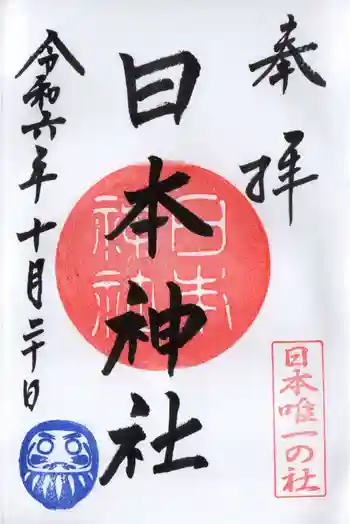 奉拝
日本神社
日本神社
令和六年十月二十日
日本唯一の社